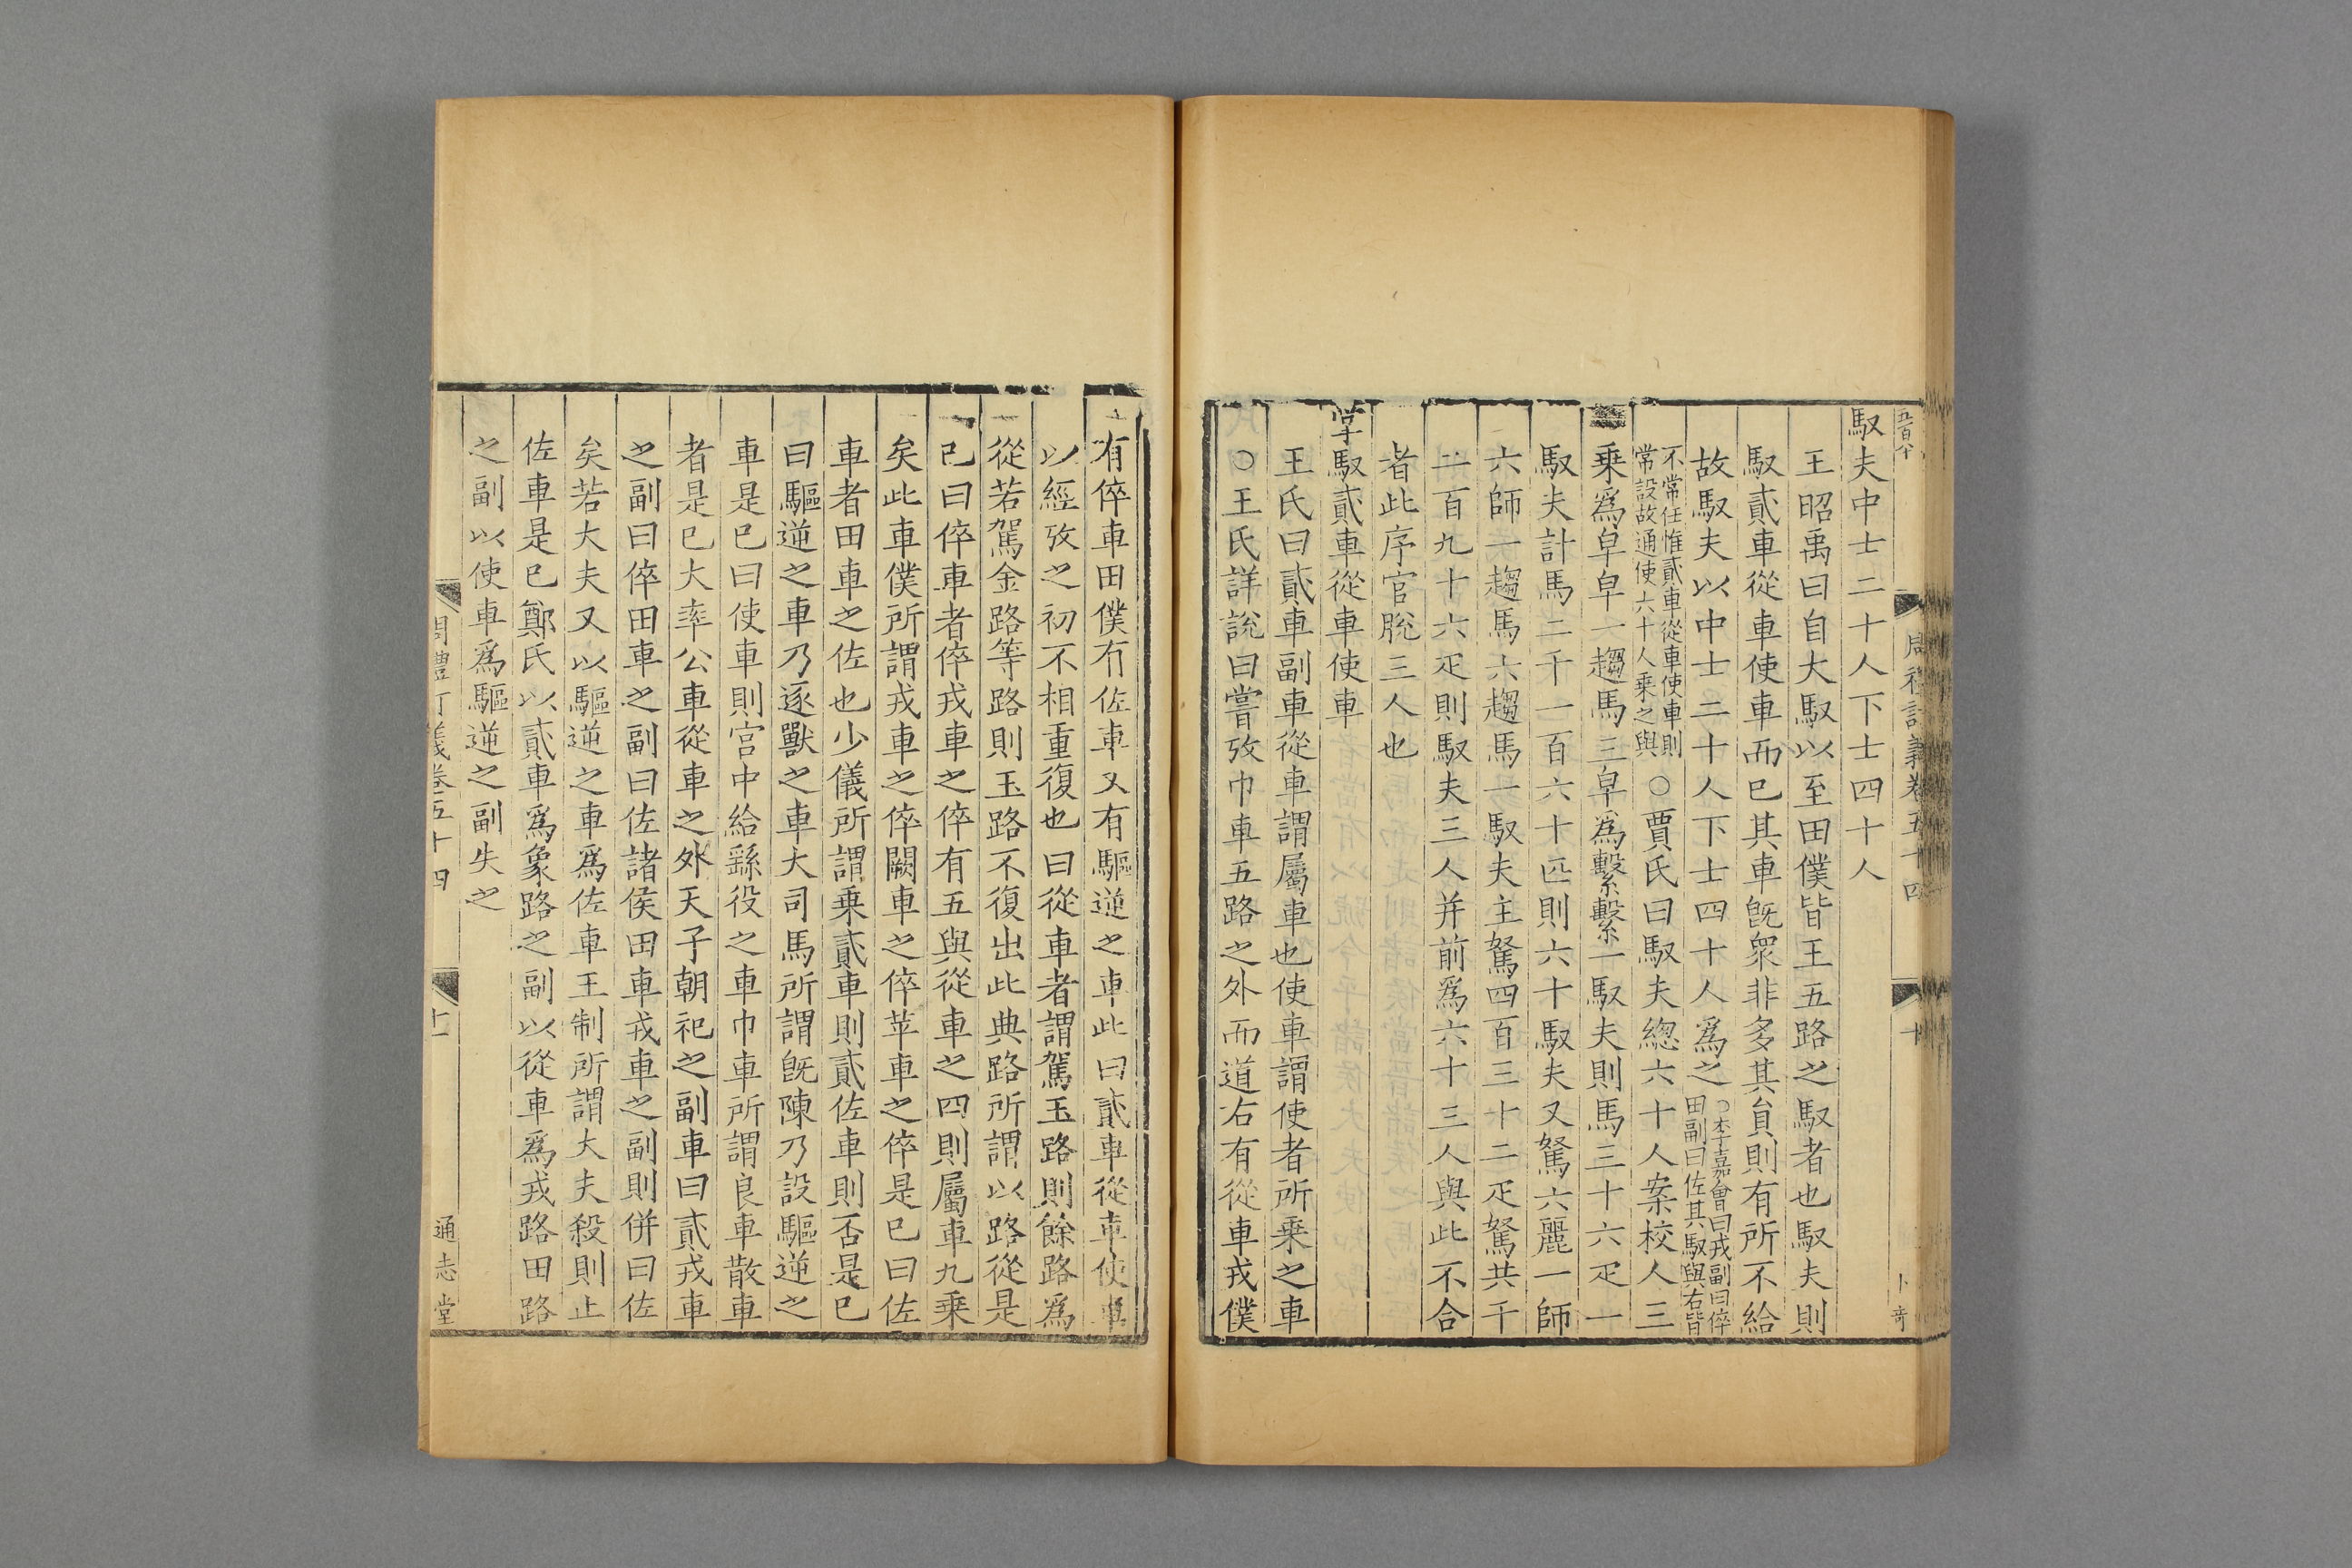 五百八
周禮訂義卷五十四
十
卜奇
馭夫中士二十人下士四十人
王昭禹曰自大馭以至田僕皆王五路之馭者也馭夫則
馭貳車從車使車而已其車旣衆非多其員則有所不給
故馭夫以中士二十人下士四十人爲之○李嘉會曰戎副曰倅
田副曰佐其馭與右皆
不常任惟貳車從車使車則
常設故通使六十人乗之與○賈氏曰馭夫緫六十人案校人三
乗爲皁皁一趨馬三皁爲繫繫一馭夫則馬三十六疋一
馭夫計馬二千一百六十匹則六十馭夫又駑六麗一師
六師一趨馬六趨馬一馭夫主駑四百三十二疋駑共千
二百九十六疋則馭夫三人并前爲六十三人與此不合
者此序官脫三人也
掌馭貳車從車使車
王氏曰貳車副車從車謂屬車也使車謂使者所乗之車
○王氏詳說曰嘗攷巾車五路之外而道右有從車戎僕
有倅車田僕有佐車又有驅逆之車此曰貳車從車使車
以經攷之初不相重復也曰從車者謂駕玉路則餘路爲
從若駕金路等路則玉路不復出此典路所謂以路從是
已曰倅車者倅戎車之倅有五與從車之四則屬車九乗
矣此車僕所謂戎車之倅闕車之倅苹車之倅是已曰佐
車者田車之佐也少儀所謂乗貳車則貳佐車則否是已
曰驅逆之車乃逐獸之車大司馬所謂旣陳乃設驅逆之
車是已曰使車則宫中給繇役之車巾車所謂良車散車
者是已大率公車從車之外天子朝祀之副車曰貳戎車
之副曰倅田車之副曰佐諸侯田車戎車之副則併曰佐
矣若大夫又以驅逆之車爲佐車王制所謂大夫殺則止
佐車是已鄭氏以貳車爲象路之副以從車爲戎路田路
之副以使車爲驅逆之副失之
周禮訂義卷五十四
十一
通志堂